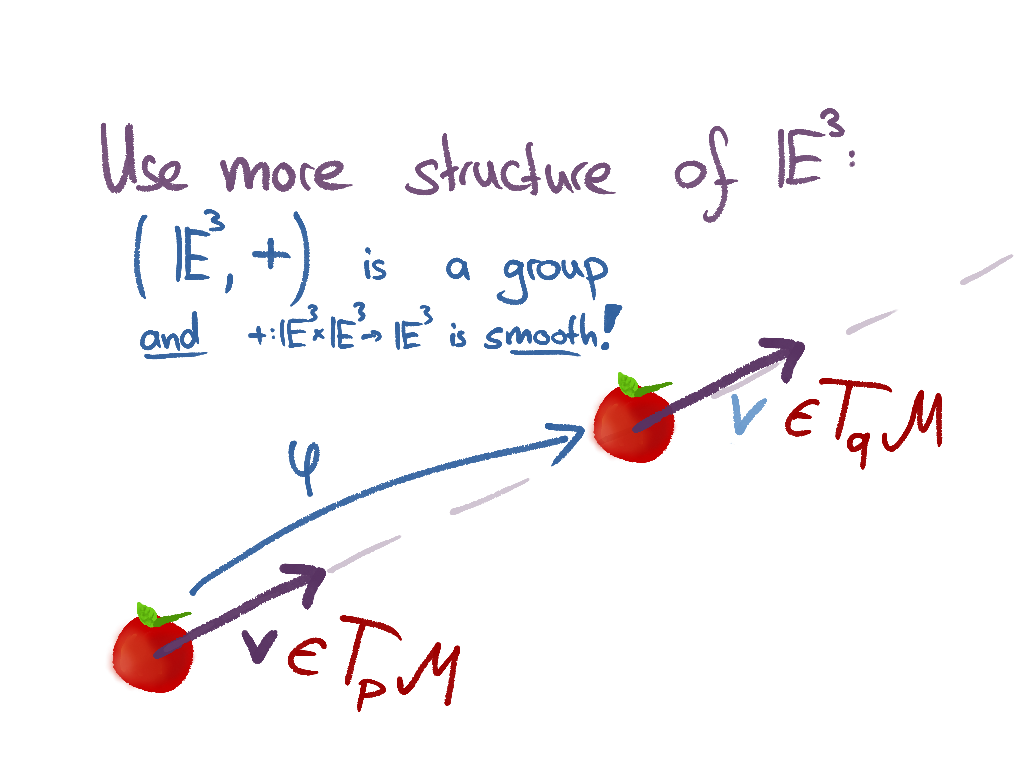 Use more structure of 𝔼³:
(𝔼³, +) is a group
and +: 𝔼³×𝔼³→ 𝔼³ is smooth!
φ
v ∈ T_q M
v ∈ T_p M